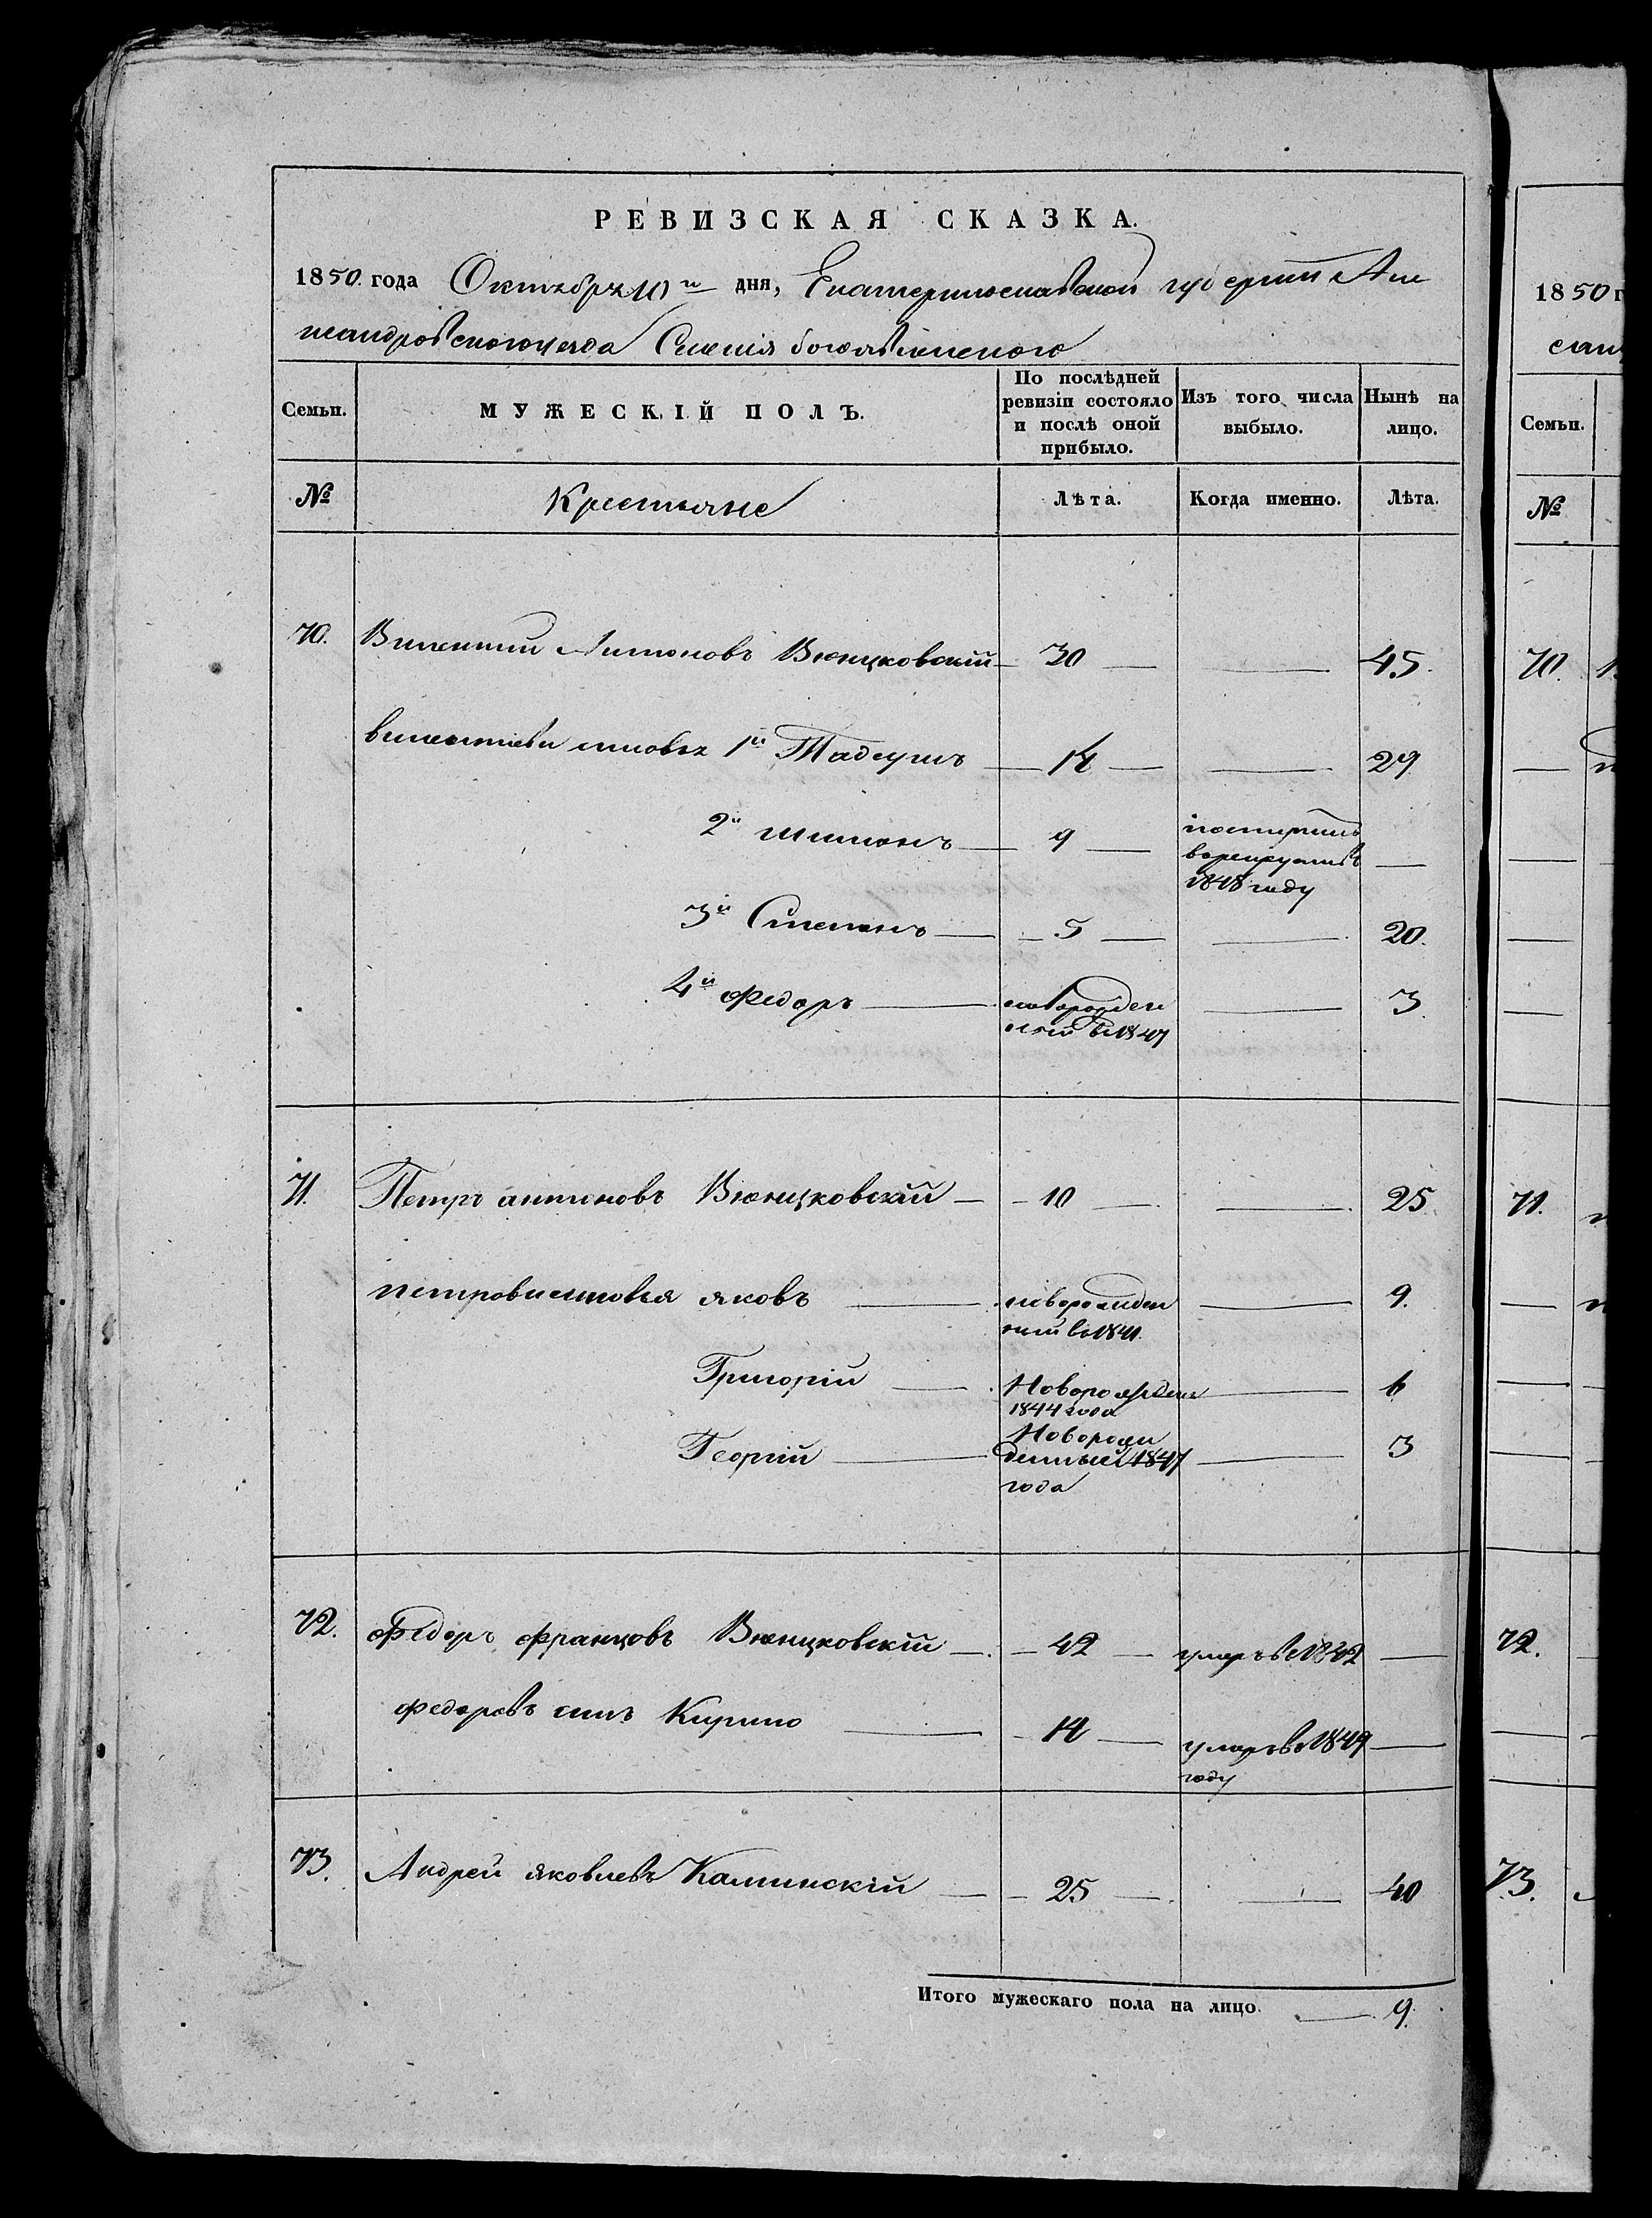 РЕВИЗСКАЯ СКАЗКА.
1850. года Октября 10 го дня, Екатеринославской губернии Алек
сандровского уезда Селения Богоявленского
Семьи. МУЖЕСКІЙ ПОЛЪ. По послѣдней ревизіи состояло и послѣ оной прибыло. Изъ того числа выбыло. Нынѣ на лицо.
№ Крестьяне Лѣта. Когда именно. Лѣта.
70. Викентий Антоновъ Вюнцковскій 30 45.
викентиеви сыновья 1й Тадеушъ 14 29
2й шимонъ 9 поступилъ
в рекруты въ
1848 году
3й Степанъ 5 20.
4й Федоръ новорожден 3
ный въ 1847
71. Петръ антоновъ Вюнцковскій 10 25
петрови сыновья яковъ новорожден 9.
ный въ 1841.
Григорій Новорожден 6
1844 года
Георгій Новорож 3
денный 1847
года
72. Федоръ францовъ Вюнцковскій 42 умеръ въ 1842
федоровъ сынъ Кирило 14 умеръ въ 1849
году
73. Андрей яковлевъ Калинскій 25 40
Итого мужескаго пола на лицо 9.
1850 г
сан
Семьи.
№
70.
71.
72.
73.